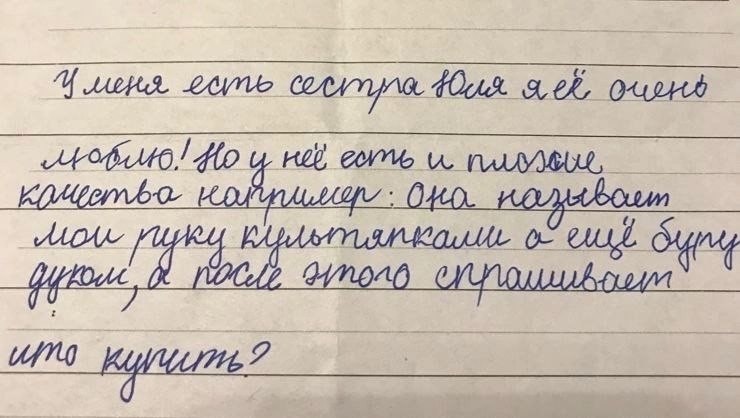 У меня есть сестра Юля я её очень
люблю! Но у неё есть и плохие
качества например: она называет
мои руку культяпками а ещё буру
дуком, а после этого спрашивает
што купить?